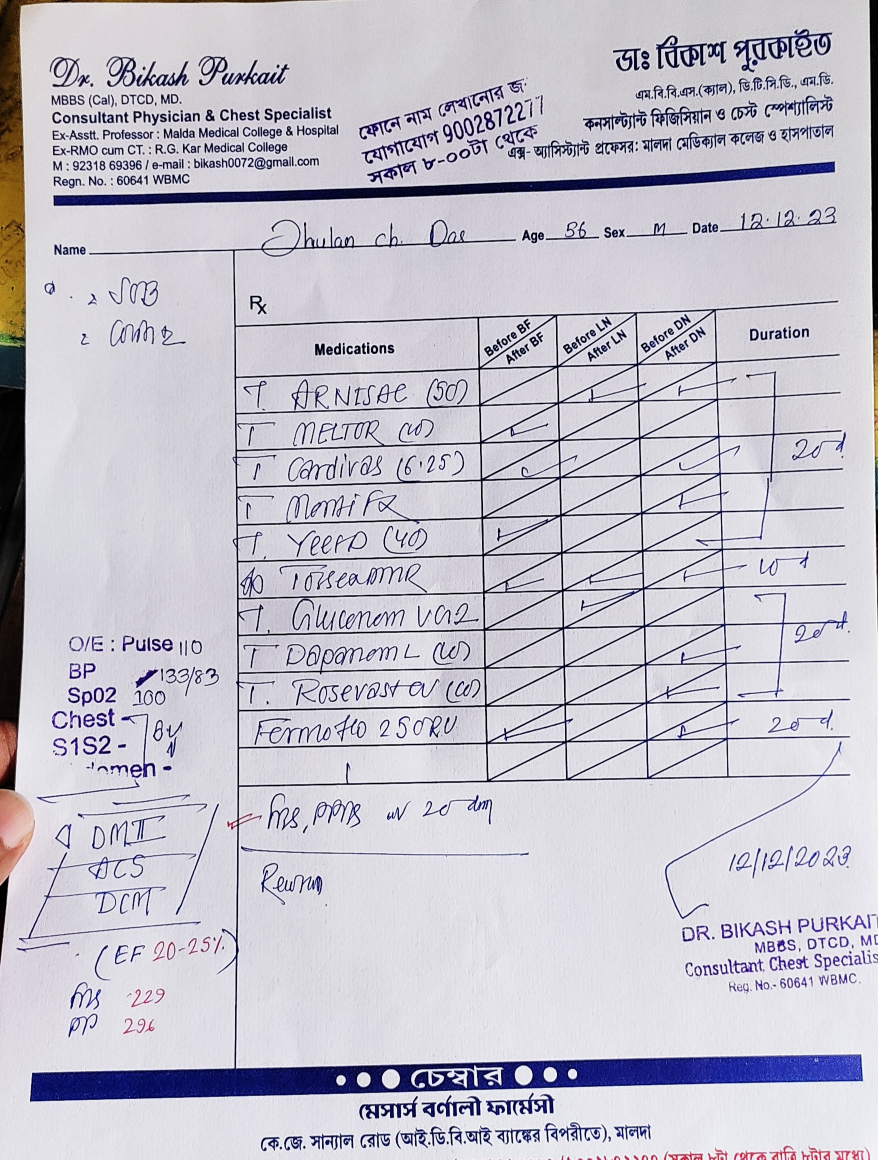 Dr. Bikash Purkait
MBBS (Cal), DTCD, MD.
Consultant Physician & Chest Specialist
Ex-Asstt. Professor : Malda Medical College & Hospital
Ex-RMO cum CT. : R.G. Kar Medical College
M : 92318 69396 / e-mail : bikash0072@gmail.com
Regn. No. : 60641 WBMC
ফোনে নাম লেখানোর জ
যোগাযোগ 9002872277
সকাল ৮-০০টা থেকে
ডাঃ বিকাশ পুরকাইত
এম.বি.বি.এস.(ক্যাল), ডি.টি.সি.ডি., এম.ডি.
কনসাল্ট্যান্ট ফিজিসিয়ান ও চেস্ট স্পেশ্যালিস্ট
এক্স- অ্যাসিস্ট্যান্ট প্রফেসর: মালদা মেডিক্যাল কলেজ ও হাসপাতাল
Name Jhulan ch. Das Age 56 Sex M Date 12.12.23
SOB
Rx
Medications Before BF After BF Before LN After LN Before DN After DN Duration
T. ARNISAC (50)
T MELTOR (10)
T Cardivas (6.25) 20 d
T Montifx
T. (40)
MR 10 d
T. Gluconom VG2
T Dapanom L (10) 20 d.
T. Rosevast (10)
250 20 d.
O/E : Pulse 110
BP 133/83
Sp02 100
Chest -
S1S2 -
omen -
DM II
ACS
DCM
(EF 20-25%)
229
PP 296
20
Review
12/12/2023
DR. BIKASH PURKAI
MBBS, DTCD, MD
Consultant Chest Specialis
Reg. No.- 60641 WBMC.
চেম্বার
মেসার্স বর্ণালী ফার্মেসী
কে.জে. সান্যাল রোড (আই.ডি.বি.আই ব্যাঙ্কের বিপরীতে), মালদা